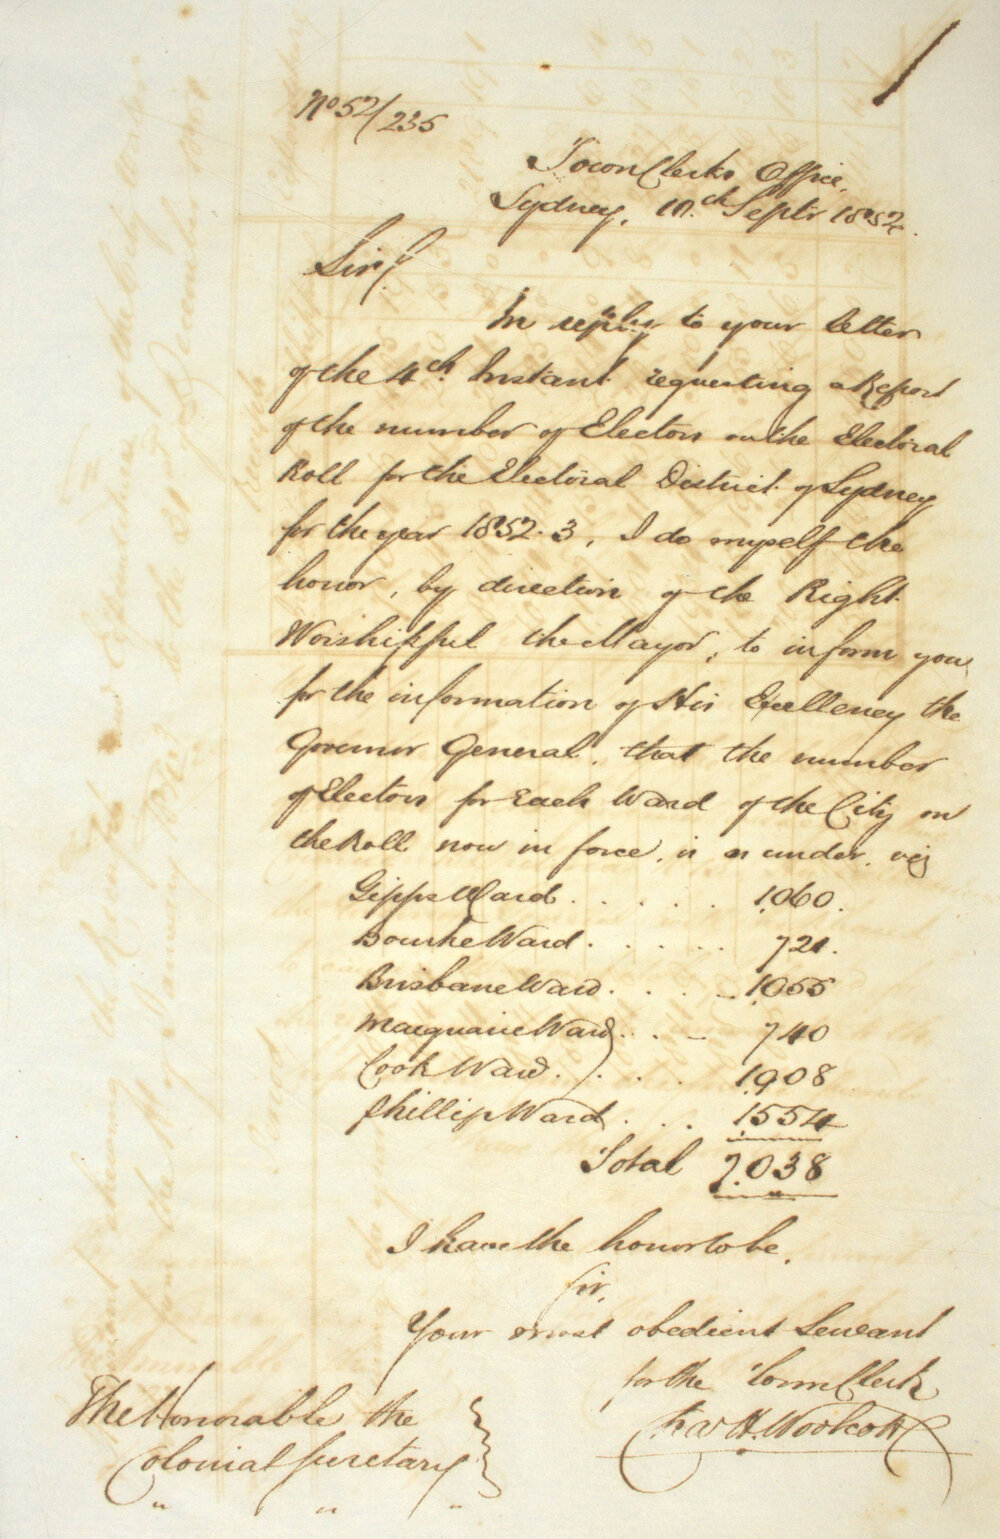 No 52/235
Town Clerks Office,
Sydney, 10.th Septr 1852.
Sir,
In reply to your letter
of the 4th. Instant requesting a Report
of the number of Electors on the Electoral
Roll for the Electoral District of Sydney
for the year 1852.3, I do myself the
honor, by direction of the Right
Worshipful the Mayor, to inform you,
for the information of His Excellency the
Governor General, that the number
of Electors for each Ward of the City on
the Roll now in force, is as under, viz
Gipps Ward . . . . . 1,060.
Bourke Ward . . . . . 721.
Brisbane Ward . . . . 1,055
Macquarie Ward . . . 740
Cook Ward . . . . . 1,908
Phillip Ward . . . 1,554
Total 7.038
I have the honor to be,
Sir,
Your most obedient Servant
for the Town Clerk
H. Woolcott
The Honorable the
Colonial Secretary
" " "